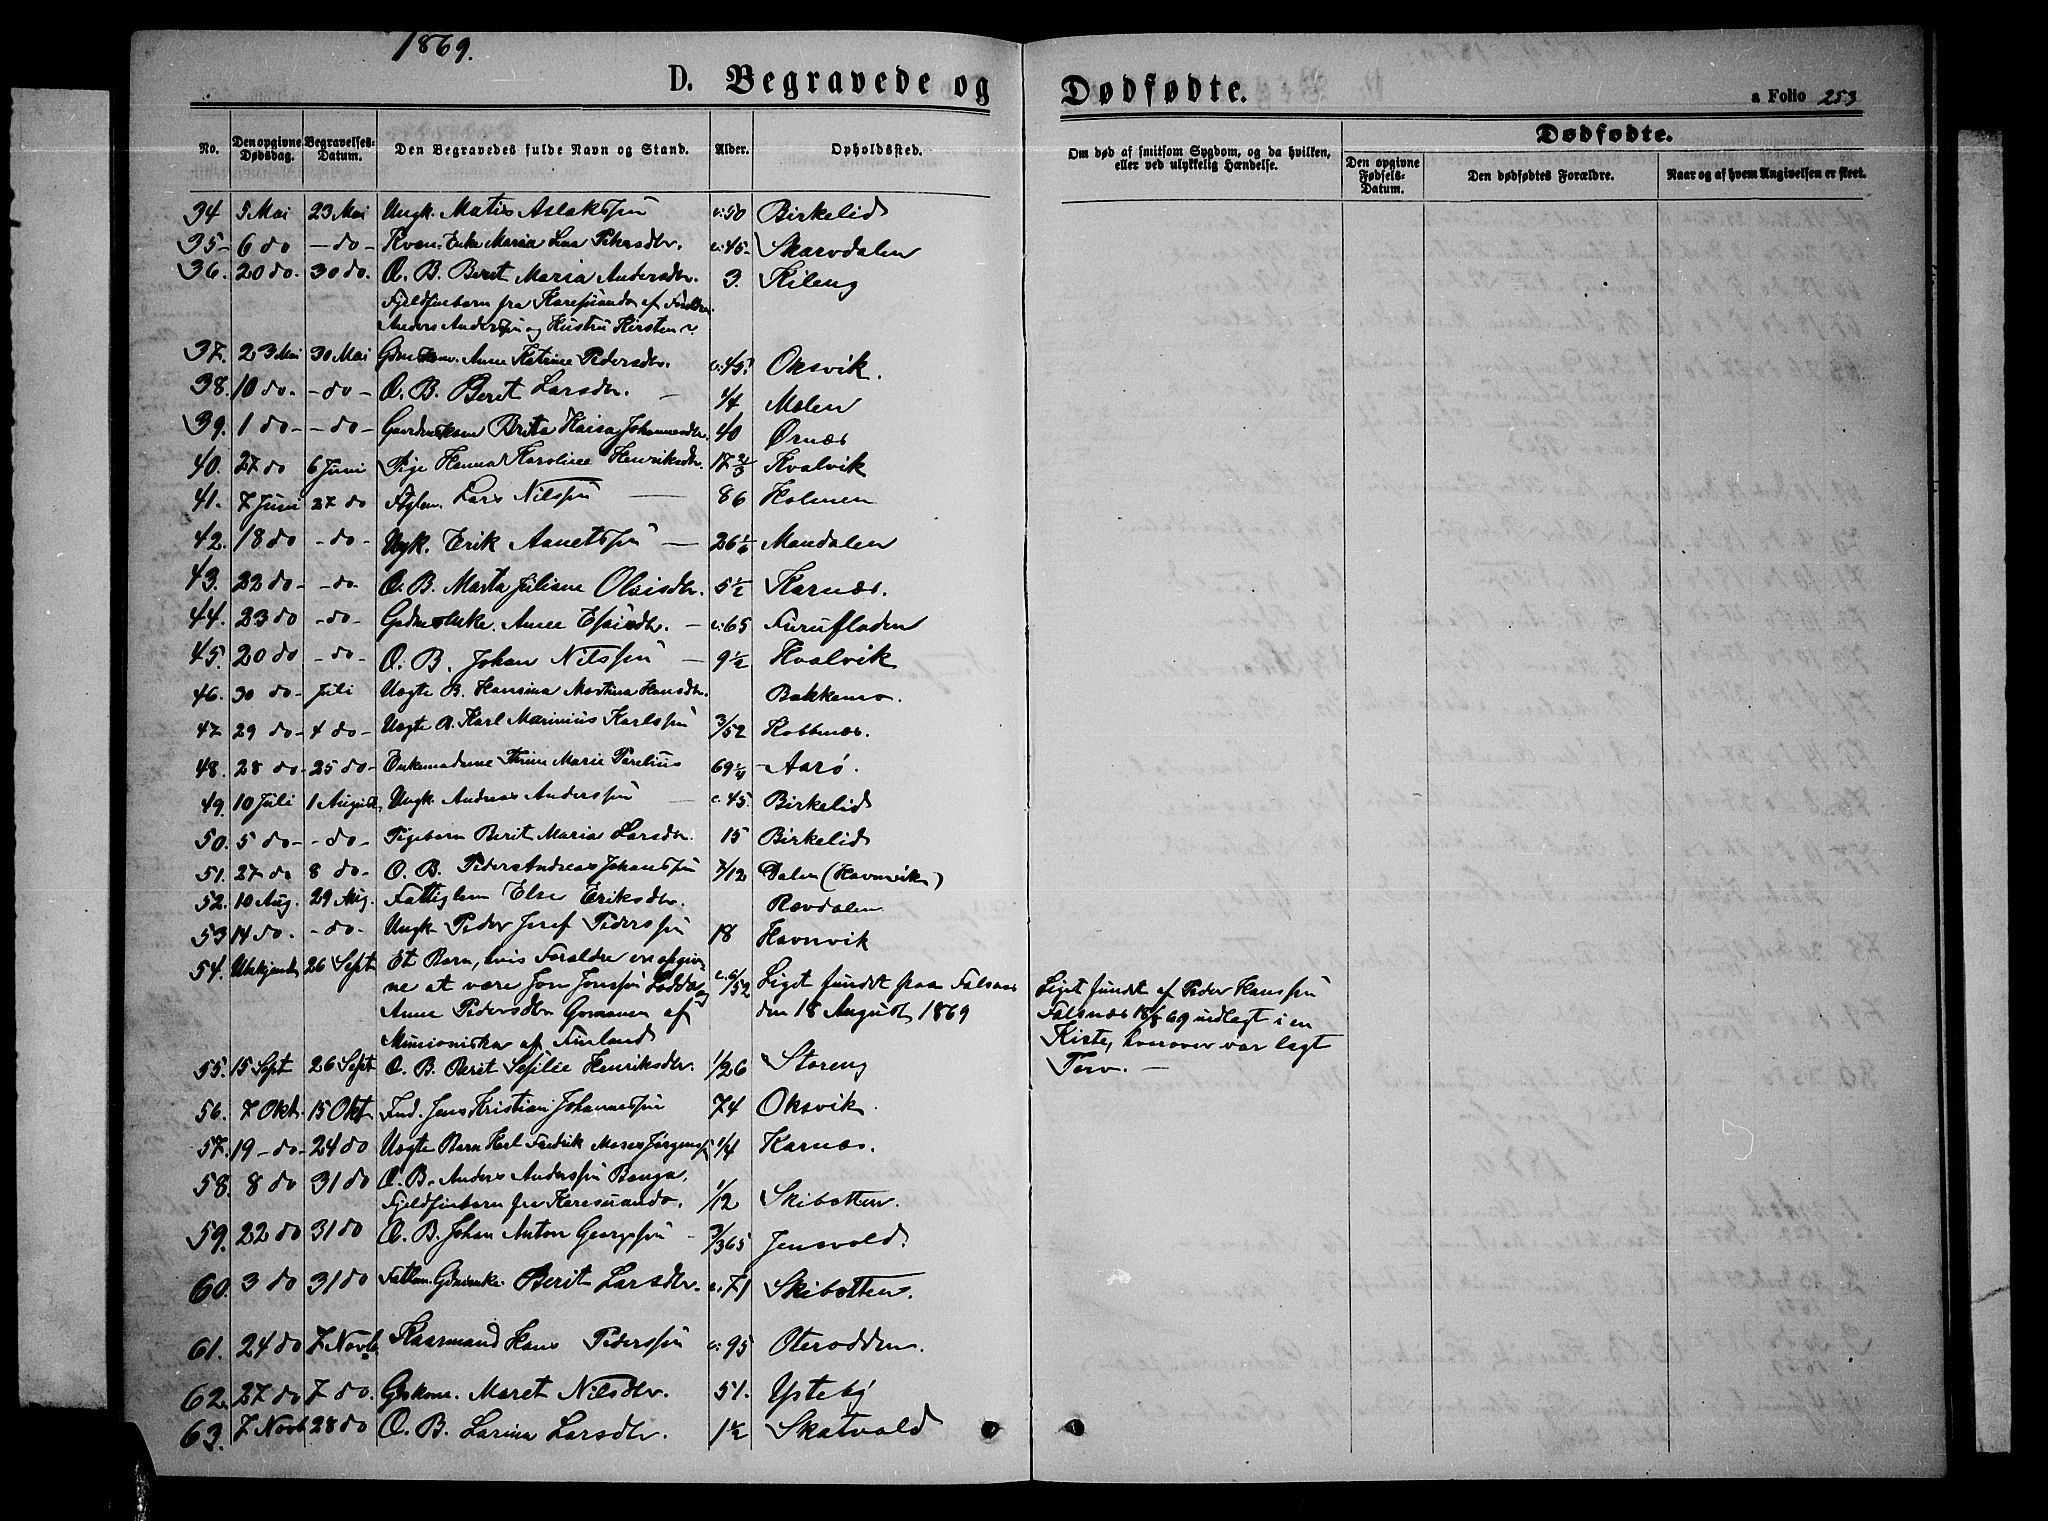 1869.
D. Begravede og Dødfødte.
a Folio 253
No. Den opgivne Dødsdag. Begravelses-Datum. Den Begravedes fulde Navn og Stand. Alder. Opholdssted. Om død af smitsom Sygdom, og da hvilken, eller ved ulykkelig Hændelse. Dødfødte.
Den opgivne Fødsels-Datum. Den dødfødtes Forældre. Naar og af hvem Angivelsen er skeet.
34 5 Mai 23 Mai Ungk. Matis Aslakssøn c. 50 Birkelid
35 6 do - do - Kven. Enke Maria Lisa Petersdtr. c. 45 Skarvdalen
36. 20 do. 30 do. O. B. Berit Maria Andersdtr. 3. Kileng
Fjeldfinbarn fra Karesuando af Foreldre
Anders Anderssøn og Hustru Kirsten
37. 23 Mai 30 Mai Anne Katrine Pedersdtr. c. 45. Oksvik.
38. 10 do. - do - O. B. Berit Larsdtr. 1/4 Molen
39. 1 do - - do - Gaardmskone Brita Kaisa Johannesdtr. 40 Ørnæs
40. 27 do 6 Juni Pige Hanna Karoline Henriksdtr. 17 2/3 Kvalvik
41. 7 Juni 27 do Fatglem. Lars Nilssøn 86 Holmen
42. 18 do - do - Ungk. Erik Anetssøn 26 1/6 Mandalen
43. 22 do - - do. O. B. Marta Juliane Olsisdtr. 5 1/2 Karnæs.
44. 23 do - do - Gdmsenke. Anne Esaisdtr. c. 65 Furufladen
45. 20 do - do - O. B. Johan Nilssøn 9 1/2 Kvalvik
46. 30 do - Juli Uægte B. Hansina Martina Hansdtr. Bakkemo.
47 29 do - 4 do - Uægte B. Karl Marinius Karlssøn 3/52 Kobbnæs.
48. 28 do - 25 do - Enkemadame Trine Marie Parelius 69 1/4 Aarø.
49. 10 Juli 1 August Ungk. Andreas Anderssøn c. 45. Birkelid
50. 5 do - - do - Pigebarn Berit Maria Larsdtr. 15 Birkelid
51. 27 do 8 do - O. B. Peder Andreas Johanssøn 7/12 Dalen (Havnvik)
52. 10 Aug. 29 Aug. Fattiglem Else Eriksdtr. Rævdalen
53 14 do. - do. Ungk. Peder Josef Pederssøn 18 Havnvik
54. Ubekjendt 26 Sept Et Barn, hvis Foraldre er opgiv-
ne at være Jon Jonssøn Lodda og c. 6/52 Liget fundet paa Falsnæs
Anne Pedersdtr Gomanen af den 18 August 1869
Munioniska af Finland
Liget fundet af Peder Hanssøn
Falsnæs 18/8 69 indlagt i en
Kiste, hvorover var lagt
Torv. -
55. 15 Sept 26 Sept O. B. Berit Sefilie Henriksdtr. 1/26 Storeng
56. 7 Okt. 15 Okt. Ind. Jens Kristian Johannessøn 74 Oksvik.
57. 19 - do - 24 do Uægte Barn Karl Fredrik Moses Jørgenssøn 1/4 Karnæs.
58. 8 do 31 do O. B. Anders Anderssøn Banga.
Fjeldfinbarn fra Karesuando. 1/12 Skibotten.
59. 22 do 31 do O. B. Johan Anton Georgssøn 3/365 Jensvold.
60. 3 do 31 do Fatlem. Gdmenke Berit Larsdtr. c. 71 Skibotten.
61. 24 do 7 Novb. Kaarmand Hans Pederssøn c. 95 Oterodden.
62. 27 do 7 do. Gkone. Maret Nilsdtr. 51. Ysteby
63. 7 Novb 28 do O. B. Larina Larsdtr. 1 1/2 Skatvold